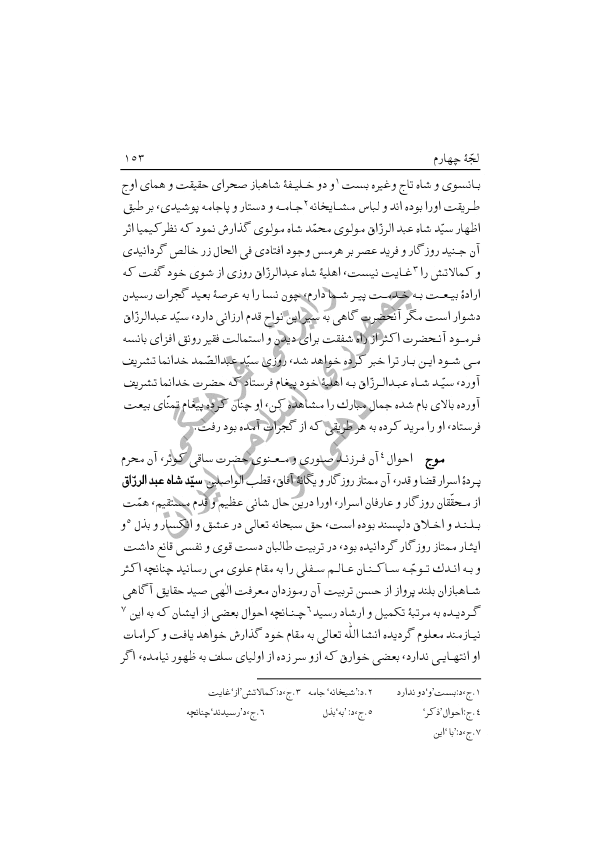 لجّۀ چهارم ۱۵۳
بانسوی و شاه تاج وغیره بست۱و دو خلیفۀ شاهباز صحرای حقیقت و همای اوج
طریقت اورا بوده اند و لباس مشایخانه۲جامه و دستار و پاجامه پوشیدی، بر طبق
اظهار سیّد شاه عبد الرزّاق مولوی محمّد شاه مولوی گذارش نمود که نظر کیمیا اثر
آن جنید روزگار و فرید عصر بر هرمس وجود افتادی فی الحال زر خالص گردانیدی
و کمالاتش را۳غایت نیست، اهلیۀ شاه عبدالرزّاق روزی از شوی خود گفت که
ارادۀ بیعت به خدمت پیر شما دارم، چون نسا را به عرصۀ بعید گجرات رسیدن
دشوار است مگر آنحضرت گاهی به سیر این نواح قدم ارزانی دارد، سیّد عبدالرزّاق
فرمود آنحضرت اکثر از راه شفقت برای دیدن و استمالت فقیر رونق افزای بانسه
می شود این بار ترا خبر کرده خواهد شد، روزی سیّد عبدالصّمد خدانما تشریف
آورد، سیّد شاه عبدالرزّاق به اهلیۀ خود پیغام فرستاد که حضرت خدانما تشریف
آورده بالای بام شده جمال مبارك را مشاهده کن، او چنان کرده پیغام تمنّای بیعت
فرستاد، او را مرید کرده به هر طریقی که از گجرات آمده بود رفت.
موج احوال۴آن فرزند صوری و معنوی حضرت ساقی کوثر، آن محرم
پردۀ اسرار قضا و قدر، آن ممتاز روزگار و یگانۀ آفاق، قطب الواصلین سیّد شاه عبد الرزّاق
از محقّقان روزگار و عارفان اسرار، اورا درین حال شانی عظیم و قدم مستقیم، همّت
بلند و اخلاق دلپسند بوده است، حق سبحانه تعالی در عشق و انکسار و بذل۵و
ایثار ممتاز روزگار گردانیده بود، در تربیت طالبان دست قوی و نفسی قانع داشت
و به اندك توجّه ساکنان عالم سفلی را به مقام علوی می رسانید چنانچه اکثر
شاهبازان بلند پرواز از حسن تربیت آن رموزدان معرفت الٰهی صید حقایق آگاهی
گردیده به مرتبۀ تکمیل و ارشاد رسید۶چنانچه احوال بعضی از ایشان که به این۷
نیازمند معلوم گردیده انشا اللّه تعالی به مقام خود گذارش خواهد یافت و کرامات
او انتهایی ندارد، بعضی خوارق که ازو سر زده از اولیای سلف به ظهور نیامده، اگر
۱.ج،د:بست'و'دو ندارد ۲.د:'شیخانه' جامه ۳.ج،د:کمالاتش'از'غایت
۴.ج:احوال'ذکر' ۵.ج،د:'به'بذل ۶.ج،د'رسیدند'چنانچه
۷.ج،د:'با'این
رایزنی فرهنگی
جمهوری اسلامی ایران
دهلی نو